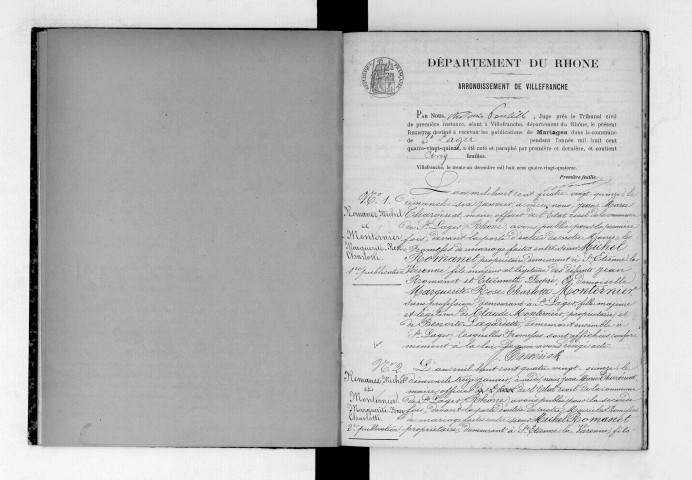 DÉPARTEMENT DU RHONE
ARRONDISSEMENT DE VILLEFRANCHE
PAR NOUS, Juge près le Tribunal civil
de première instance, séant à Villefranche, département du Rhône, le présent
REGISTRE destiné à recevoir les publications de Mariages dans la commune
de St Lager pendant l'année mil huit cent
quatre-vingt-quinze, a été coté et paraphé par première et dernière, et contient
cinq feuilles.
Villefranche, le trente-un décembre mil huit cent quatre-vingt-quatorze.
Première feuille.
No 1.
Romanet Michel
et
Monternier
Marguerite Rose
Charlotte
1ère publication
L'an mil huit cent quatre vingt quinze, le
dimanche six janvier, à midi, nous, Jean Marie
maire, officier de l'Etat civil de la commune
de St Lager, Rhône, avons publié pour la première
fois, devant la porte d'entrée de notre Mairie les
Promesses de mariage faites entre sieur Michel
Romanet propriétaire demeurant à St Etienne la
Varenne, fils majeur et légitime des défunts Jean
Romanet et Etiennette Dupré, Et demoiselle
Marguerite Rose Charlotte Monternier
sans profession demeurant à St Lager, fille majeure
et légitime de Claude Monternier, propriétaire, et
de Benoite demeurant ensemble à
St Lager, lesquelles Promesses sont affichées confor
mément à la loi
No 2
Romanet Michel
et
Monternier
Marguerite Rose
Charlotte
2e publication
L'an mil huit cent quatre vingt-quinze, le
dimanche treize janvier, à midi, nous Jean Marie
maire, officier de l'Etat civil de la commune
de St Lager, Rhône, avons publié pour la seconde
fois, devant la porte d'entrée de notre Mairie les Promesses
de mariage faites entre sieur Michel Romanet
propriétaire, demeurant à St Etienne la Varenne, fils